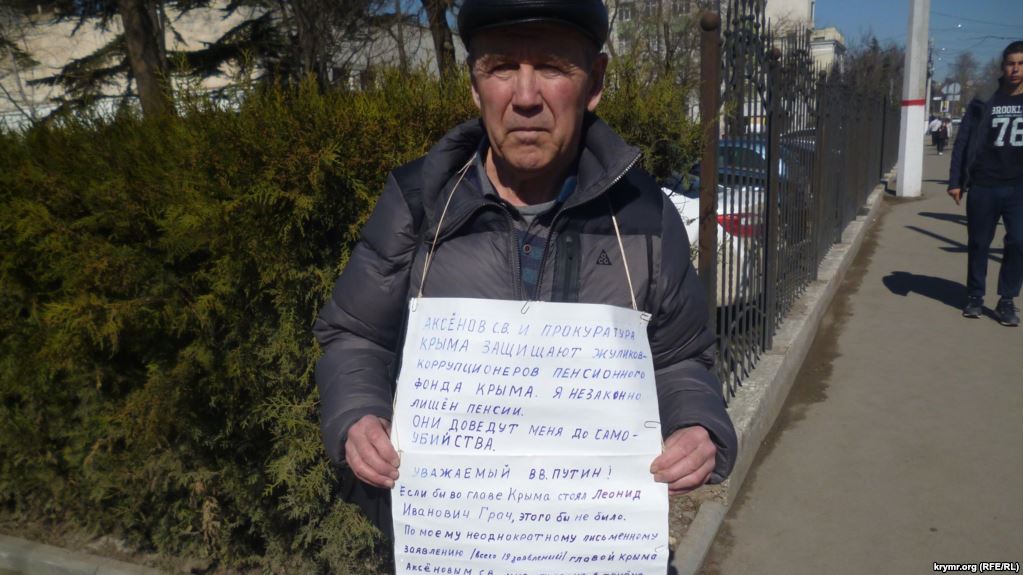 АКСЁНОВ С.В. И ПРОКУРАТУРА
КРЫМА ЗАЩИЩАЮТ ЖУЛИКОВ-
КОРРУПЦИОНЕРОВ ПЕНСИОННОГО
ФОНДА КРЫМА. Я НЕЗАКОННО
ЛИШЁН ПЕНСИИ.
ОНИ ДОВЕДУТ МЕНЯ ДО САМО-
УБИЙСТВА.
УВАЖАЕМЫЙ В.В. ПУТИН!
Если бы во главе Крыма стоял Леонид
Иванович Грач, этого бы не было.
По моему неоднократному письменному
заявлению /всего 19 заявлений/ главой Крыма
Аксёновым С.В. мне
BROOKLYN
76
krymr.org (RFE/RL)